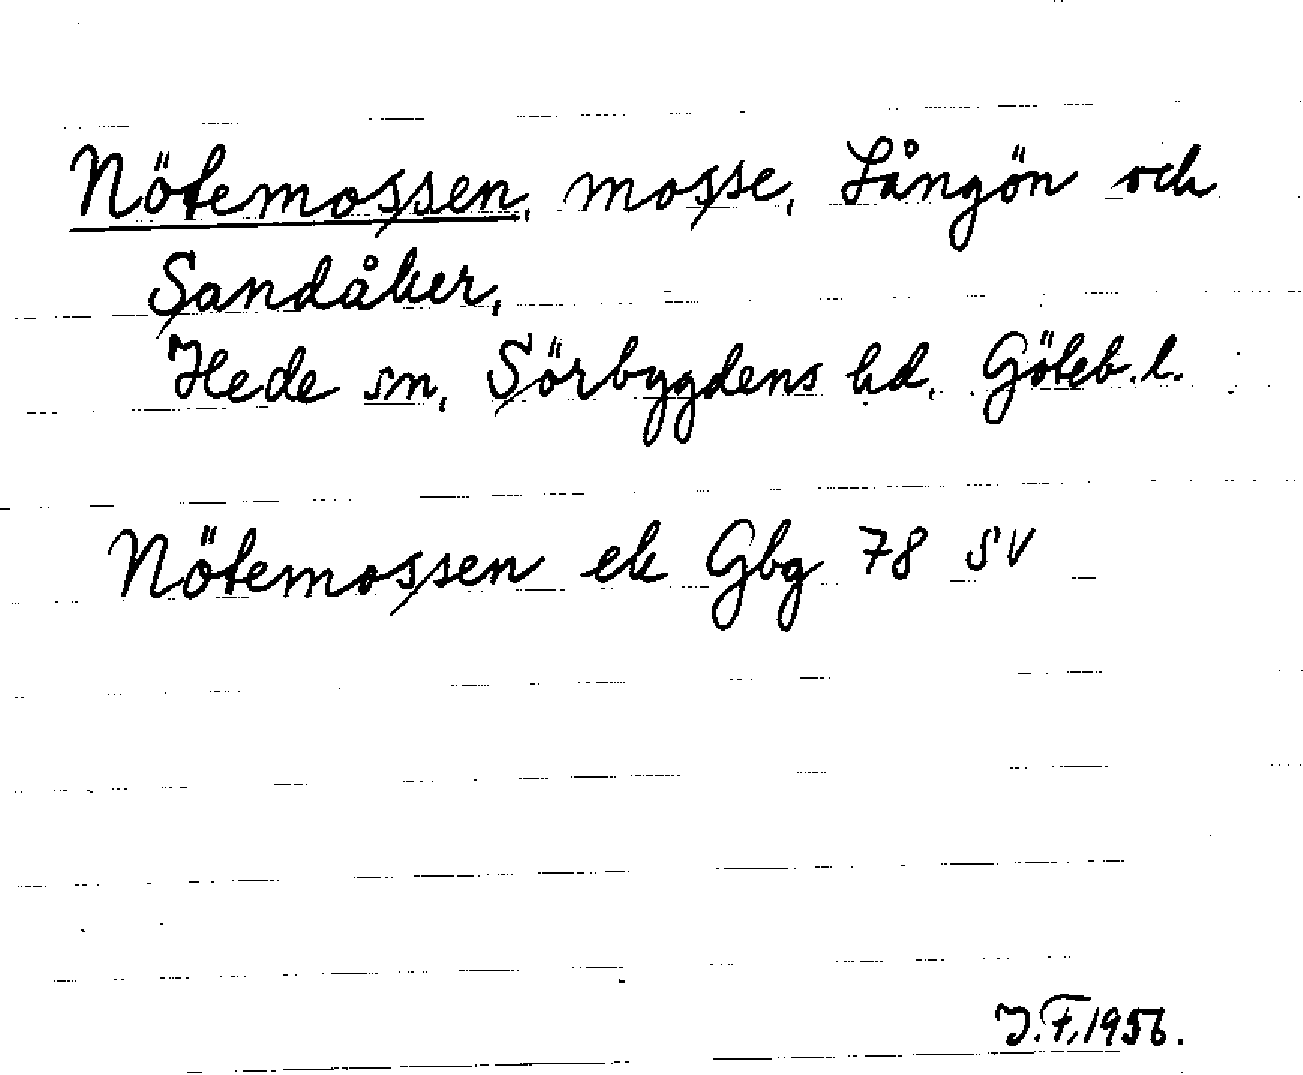 Nötemossen, mosse, Långön och
Sandåker,
Hede sn, Sörbygdens hd, Göteb. l.
Nötemossen ek Gbg 78 SV
J.F. 1956.